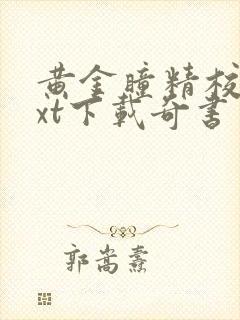 黄金瞳精校
xt下载奇书
郭嵩焘